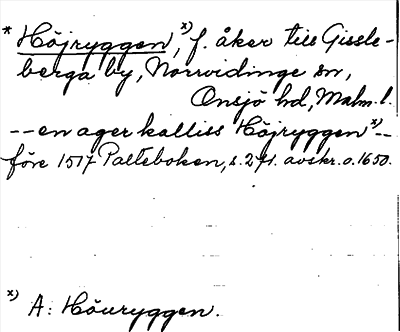 * Höjryggen,ˣ⁾ f. åker till Gissle-
berga by, Norrvidinge sn,
Onsjö hd, Malm. l.
-- en ager kalliss Höjryggenˣ⁾--
före 1517 Palteboken, s. 271. avskr. o. 1650.
ˣ⁾ A: Höuryggen.